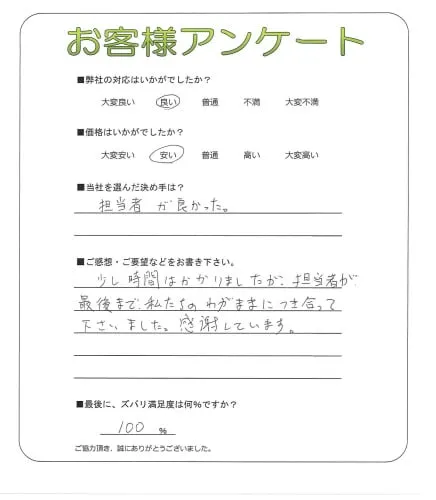 お客様アンケート
■弊社の対応はいかがでしたか？
大変良い 良い 普通 不満 大変不満
■価格はいかがでしたか？
大変安い 安い 普通 高い 大変高い
■当社を選んだ決め手は？
担当者が良かった。
■ご感想・ご要望などをお書き下さい。
少し時間はかかりましたが、担当者が
最後まで、私たちのわがままにつき合って
下さいました。感謝しています。
■最後に、ズバリ満足度は何％ですか？
100 %
ご協力頂き、誠にありがとうございました。